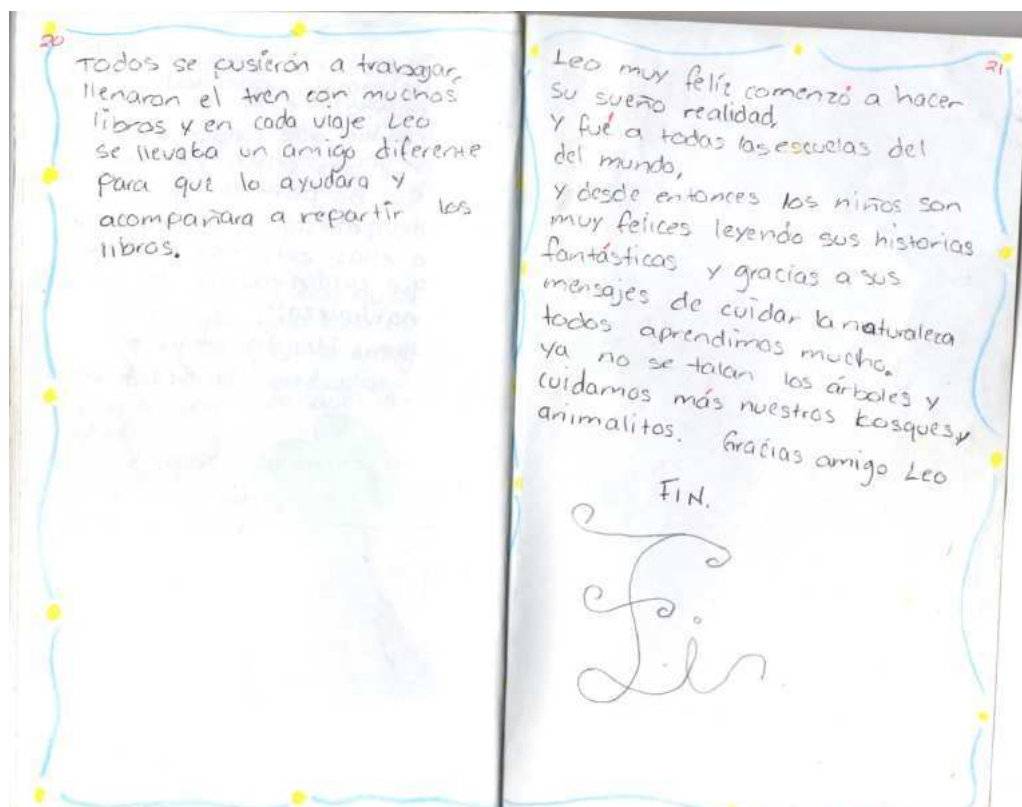 20
Todos se pusierón a trabajar,
llenaron el tren con muchos
libros y en cada viaje Leo
se llevaba un amigo diferente
para que lo ayudara y
acompañara a repartir los
libros.
21
Leo muy felíz comenzó a hacer
su sueño realidad,
y fué a todas las escuelas del
del mundo,
y desde entonces los niños son
muy felices leyendo sus historias
fantásticas y gracias a sus
mensajes de cuidar la naturaleza
todos aprendimos mucho.
ya no se talan los árboles y
cuidamos más nuestros bosques y
animalitos. Gracias amigo Leo
FIN.
Fin